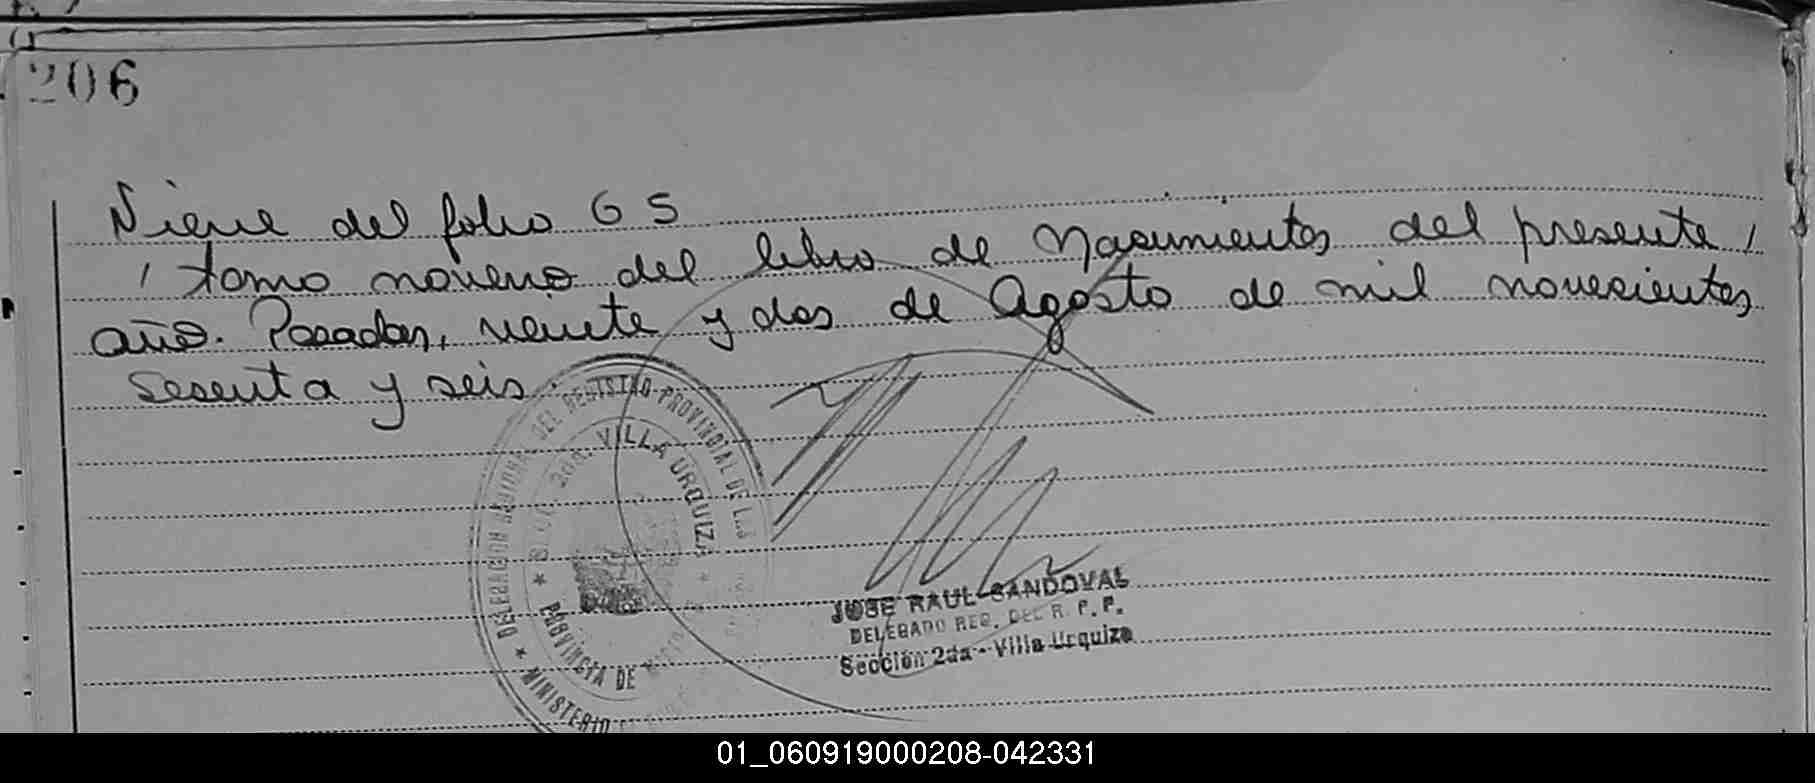 206
Viene del folio 65
/ tomo noveno del libro de Nacimientos del presente /
año. Posadas, veinte y dos de Agosto de mil novecientos
sesenta y seis.
DELEGACION REGIONAL DEL REGISTRO PROVINCIAL DE LAS
★ SECC. 2da. VILLA URQUIZA ★
PROVINCIA DE
★ MINISTERIO
JOSE RAUL SANDOVAL
DELEGADO REG. DEL R. P. P.
Sección 2da - Villa Urquiza
01_060919000208-042331